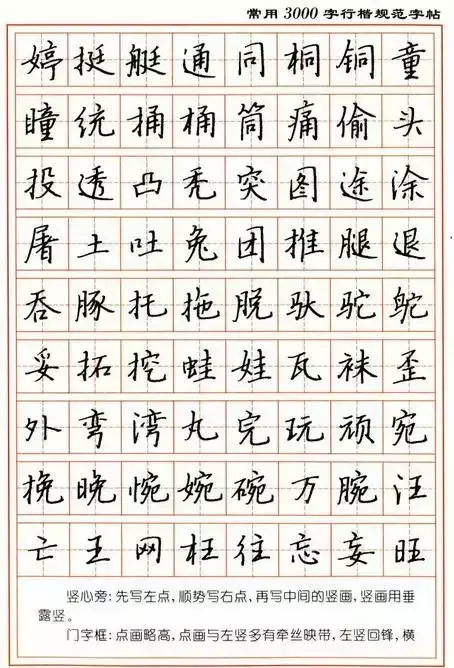 常用3000字行楷规范字帖
婷挺艇通同桐铜童
瞳统捅桶筒痛偷头
投透凸秃突图途涂
屠土吐兔团推腿退
吞豚托拖脱驮驼鸵
妥拓挖蛙娃瓦袜歪
外弯湾丸完玩顽宛
挽晚惋婉碗万腕汪
亡王网枉往忘妄旺
竖心旁：先写左点，顺势写右点，再写中间的竖画，竖画用垂
露竖。
门字框：点画略高，点画与左竖多有牵丝映带，左竖回锋，横